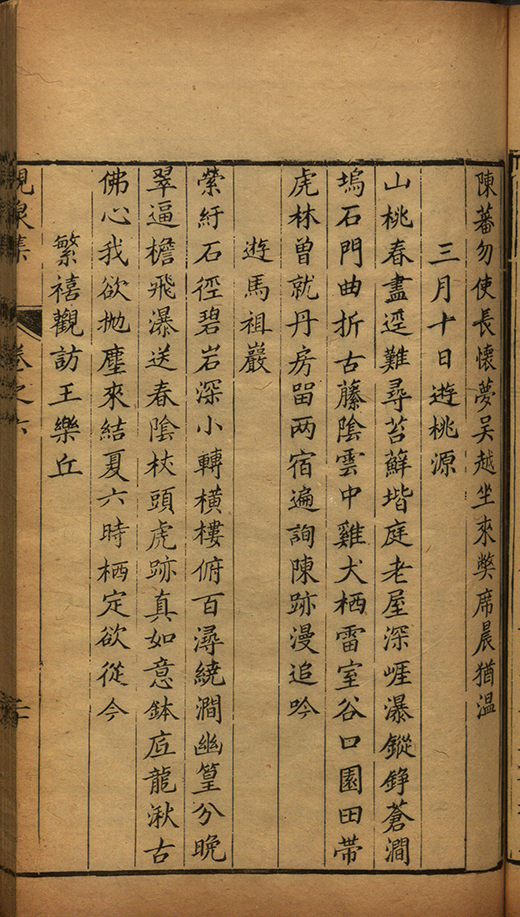 陳蕃勿使長懷夢吴越坐來獘席晨猶溫
三月十日遊桃源
山桃春盡逕難尋苔蘚堦庭老屋深崕瀑鏦錚蒼澗
塢石門曲折古藤陰雲中雞犬栖雷室谷口園田帶
虎林曾就丹房畱两宿遍詢陳跡漫追吟
遊馬祖巖
縈紆石徑碧岩深小轉橫樓俯百潯繞澗幽篁分晩
翠逼檐飛瀑送春陰杖頭虎跡真如意鉢㡳龍湫古
佛心我欲抛塵來結夏六時栖定欲從今
繁禧觀訪王樂丘
峴泉集 卷之六